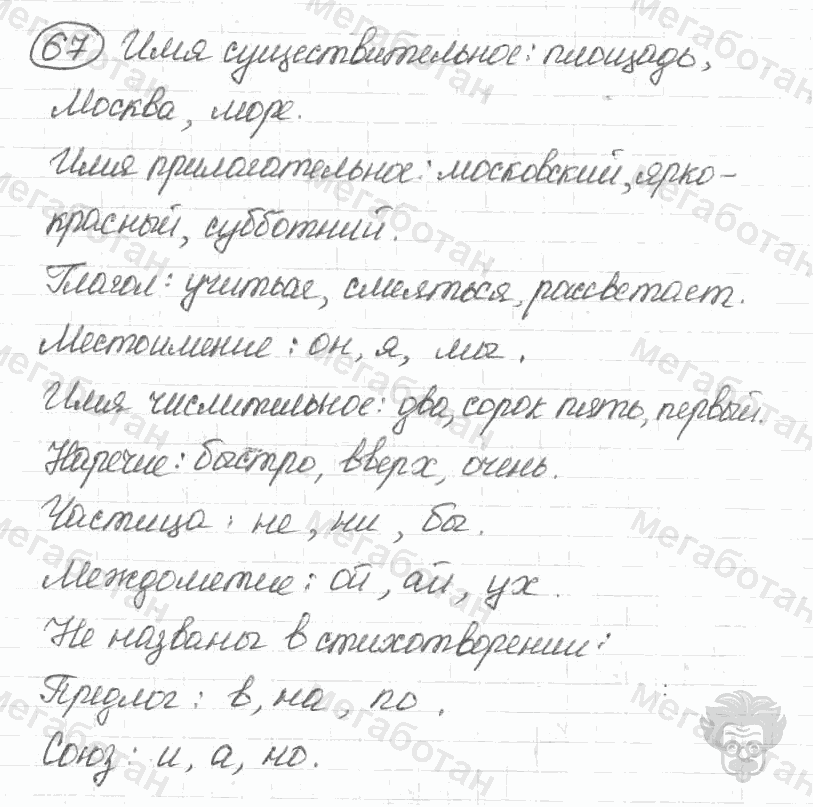 67 Имя существительное: площадь,
Москва, море.
Имя прилагательное: московский, ярко-
красный, субботний.
Глагол: учиться, смеяться, рассветает.
Местоимение: он, я, мы.
Имя числительное: два, сорок пять, первый.
Наречие: быстро, вверх, очень.
Частица: не, ни, бы.
Междометие: ой, ай, ух.
Не названы в стихотворении:
Предлог: в, на, по.
Союз: и, а, но.
Мегаботан